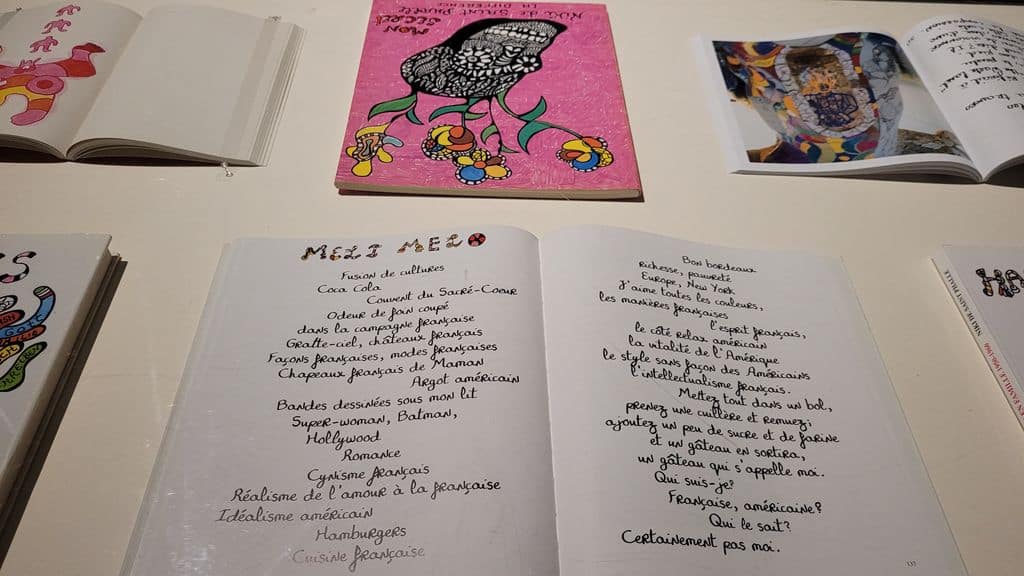 MON
SECRET
NIKI de SAINT PHALLE
LA DIFFERENCE
MELI MELO
Fusion de cultures
Coca Cola
Couvent du Sacré-Coeur
Odeur de foin coupé
dans la campagne française
Gratte-ciel, châteaux français
Façons françaises, modes françaises
Chapeaux français de Maman
Argot américain
Bandes dessinées sous mon lit
Super-woman, Batman,
Hollywood
Romance
Cynisme français
Réalisme de l'amour à la française
Idéalisme américain
Hamburgers
Cuisine française
Bon bordeaux
Richesse, pauvreté
Europe, New York
J'aime toutes les couleurs,
les manières françaises
l'esprit français,
le côté relax américain
la vitalité de l'Amérique
le style sans façon des Américains
l'intellectualisme français.
Mettez tout dans un bol,
prenez une cuillère et remuez,
ajoutez un peu de sucre et de farine
et un gâteau en sortira,
un gâteau qui s'appelle moi.
Qui suis-je?
Française, américaine?
Qui le sait?
Certainement pas moi.
137
NIKI DE SAINT PHALLE
FAMILLE